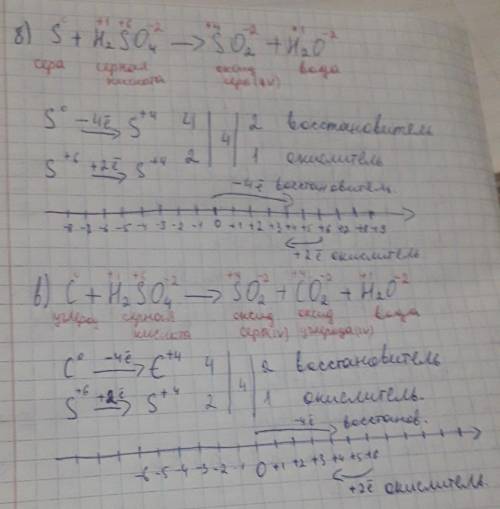 б) S + H₂SO₄ → SO₂ + H₂O
+1 +6 -2 +4 -2 +1 -2
сера серная кислота оксид серы (IV) вода
S⁰ –4ē→ S⁺⁴ 4 | 4 | 2 восстановитель
S⁺⁶ +2ē→ S⁺⁴ 2 | | 1 окислитель
–4ē восстановитель
-8 -7 -6 -5 -4 -3 -2 -1 0 +1 +2 +3 +4 +5 +6 +7 +8 +9
+2ē окислитель
в) C + H₂SO₄ → SO₂ + CO₂ + H₂O
0 +1 +6 -2 +4 -2 +4 -2 +1 -2
углерод серная кислота оксид серы (IV) оксид углерода (IV) вода
C⁰ –4ē→ C⁺⁴ 4 | 4 | 2 восстановитель
S⁺⁶ +2ē→ S⁺⁴ 2 | | 1 окислитель.
–4ē восстанов.
-6 -5 -4 -3 -2 -1 0 +1 +2 +3 +4 +5 +6
+2ē окислитель.